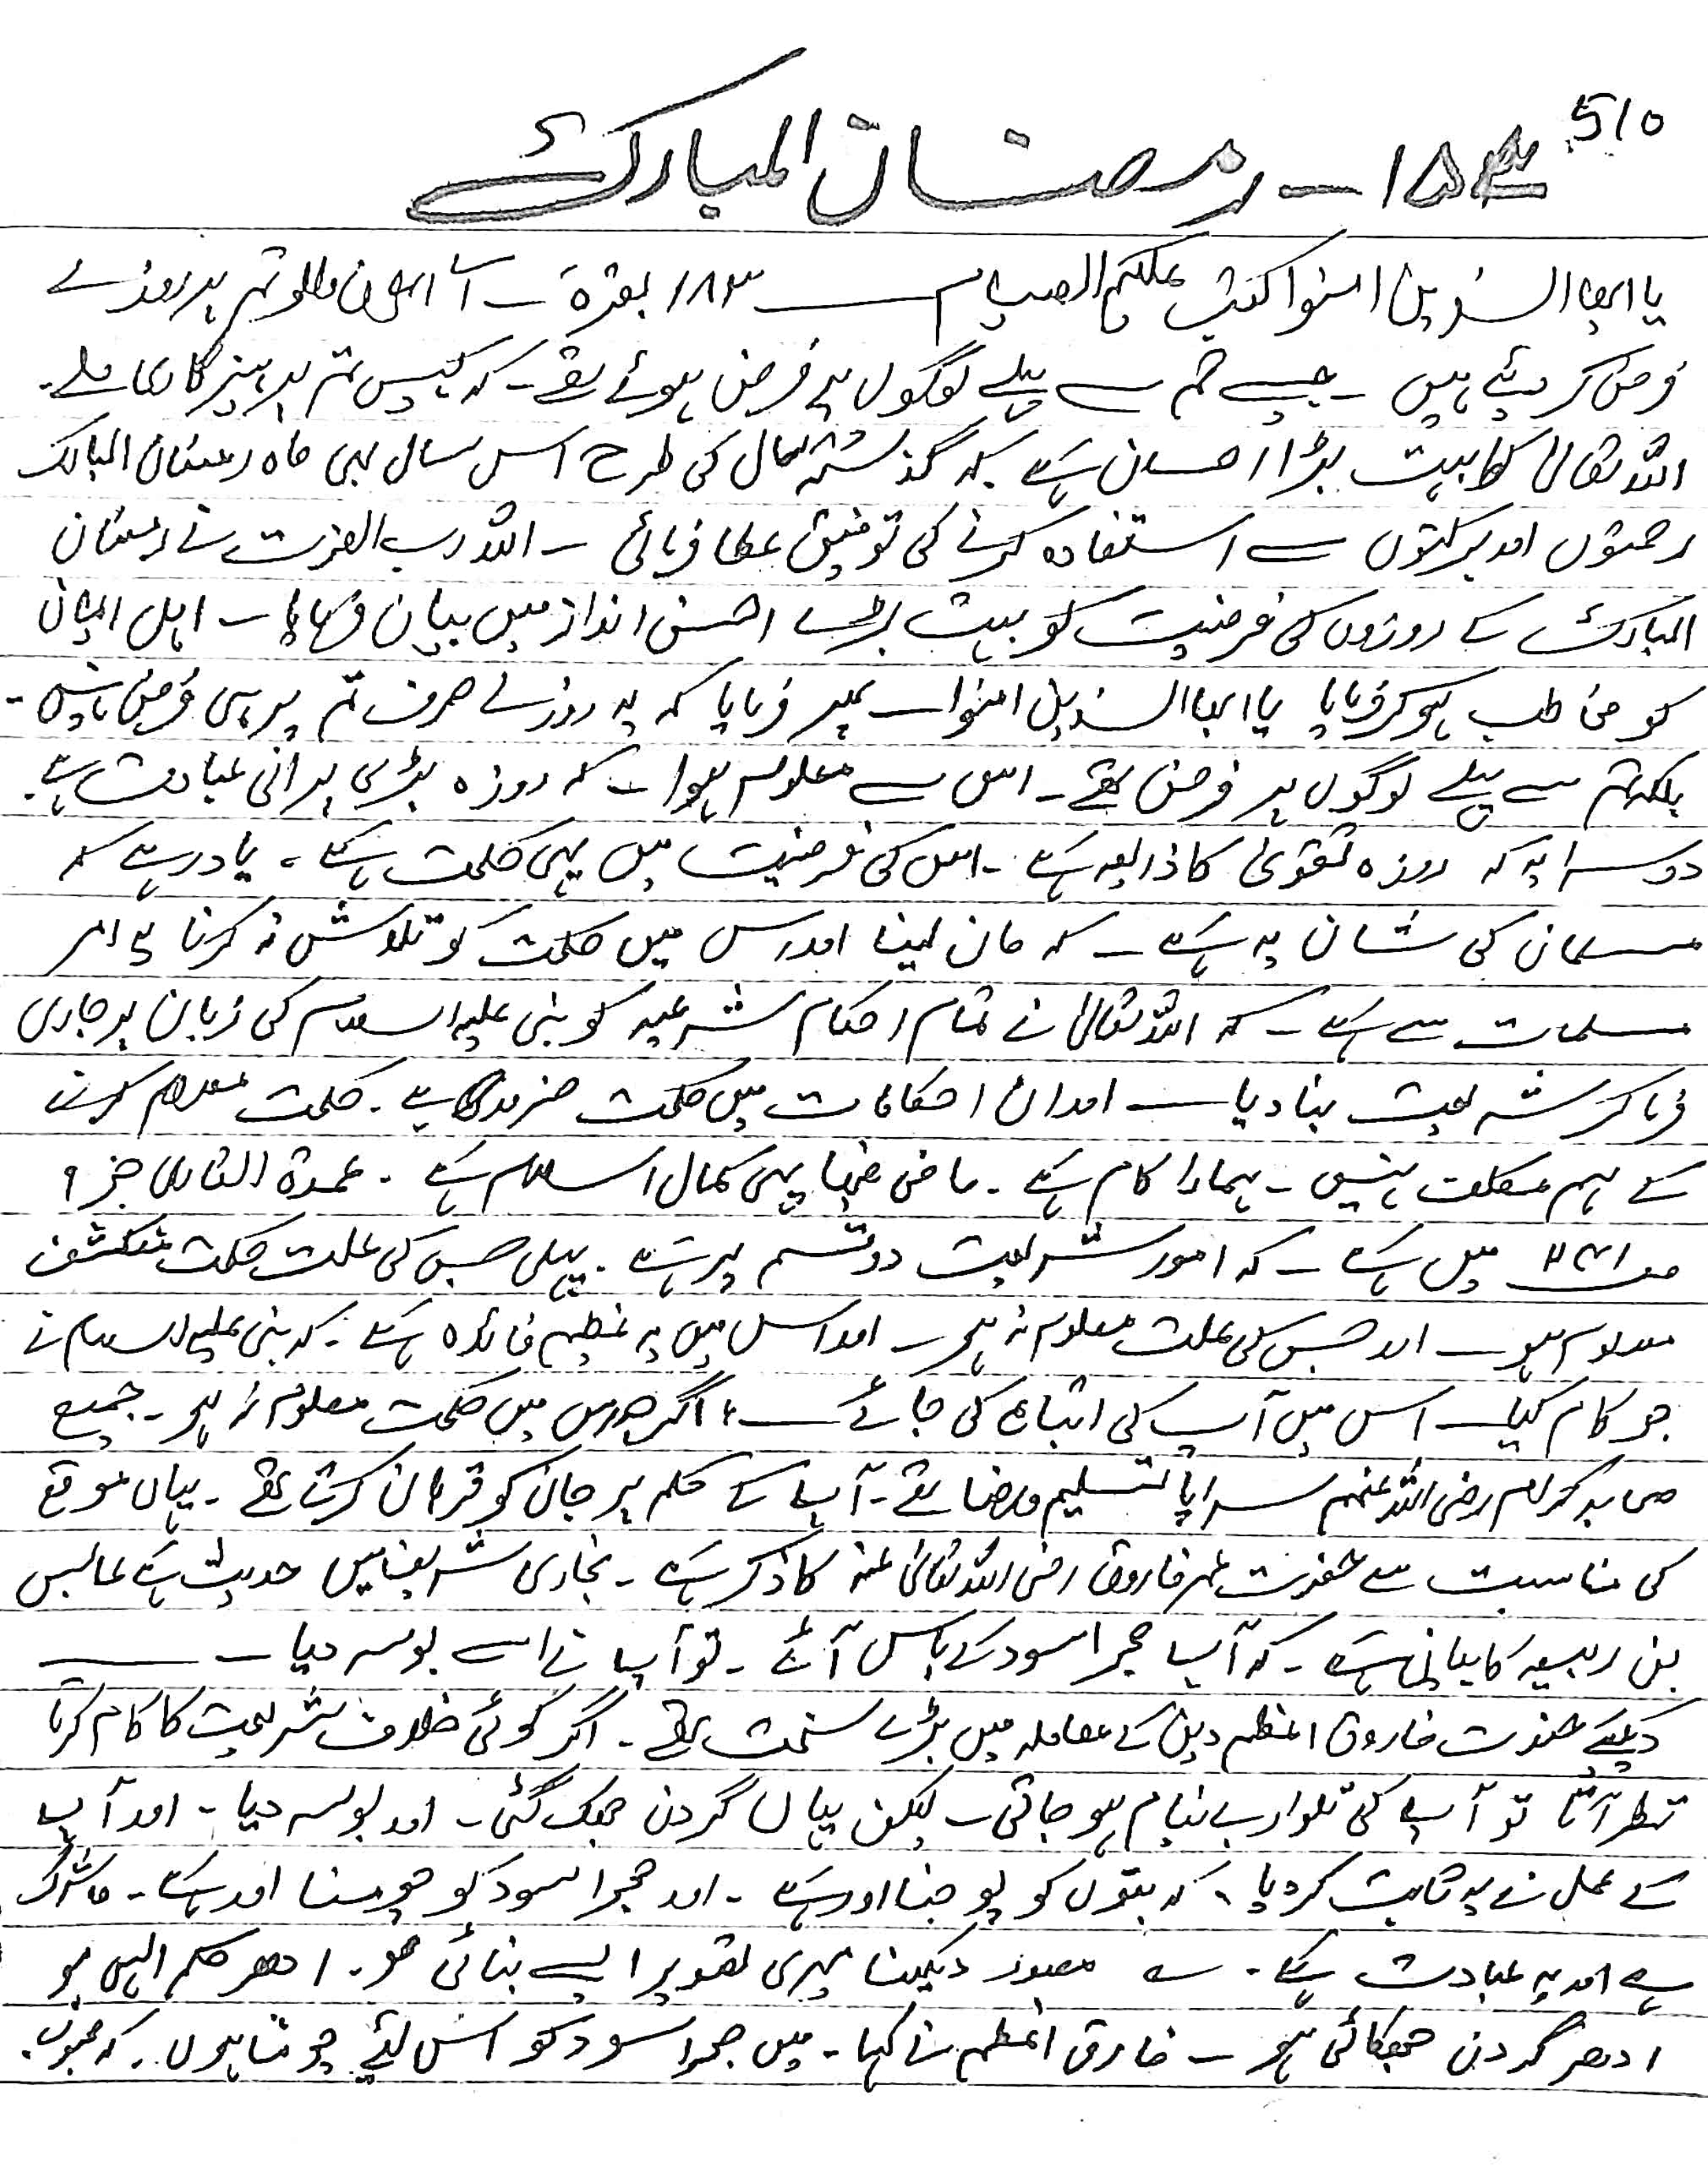 510
۱۵۳ - رمضان المبارک
یا ایھا الذین امنوا کتب علیکم الصیام ــــ ۱۸۳ بقرۃ ـ اے ایمان والو تم پر روزے
فرض کر دیئے ہیں ـ جیسے تم سے پہلے لوگوں پے فرض ہوئے تھے ـ کہ کہیں تم پرہیز گاری ملے ـ
اللہ تعالیٰ کا بہت بڑا احسان ہے کہ گذشتہ سال کی طرح اس سال بھی ماہ رمضان المبارک
رحمتوں اور برکتوں سے استفادہ کرنے کی توفیق عطا فرمائی ـ اللہ رب العزت نے رمضان
المبارک کے روزوں کی فرضیت کو بہت بڑے احسن انداز میں بیان فرمایا ـ اہل ایمان
کو مخاطب ہو کر فرمایا یا ایھا الذین امنوا ـ پھر فرمایا کہ یہ روزے صرف تم پر ہی فرض نہیں ـ
بلکہ تم سے پہلے لوگوں پر فرض تھے ـ اس سے معلوم ہوا ـ کہ روزہ بڑی پرانی عبادت ہے ـ
دوسرا یہ کہ روزہ تقویٰ کا ذریعہ ہے ـ اس کی فرضیت میں یہی حکمت ہے ـ یاد رہے کہ
مسلمان کی شان یہ ہے ـ کہ مان لینا اور اس میں حکمت کو تلاش نہ کرنا یہ امر
مسلمات سے ہے ـ کہ اللہ تعالیٰ نے تمام احکام شرعیہ کو نبی علیہ السلام کی زبان پر جاری
فرما کر شریعت بنا دیا ـ اور ان احکامات میں حکمت ضرور ہے ـ حکمت معلوم کرنے
کے ہم مکلف نہیں ـ ہمارا کام ہے ـ ماضی یہی کمال اسلام ہے ـ عمدۃ القاری جز ۹
ص میں ہے ـ کہ امور شریعت دو قسم پر ہے ـ پہلی جس کی علت حکمت منکشف
معلوم ہو ـ اور جس کی علت معلوم نہ ہو ـ اور اس میں یہ عظیم فائدہ ہے ـ کہ نبی علیہ السلام نے
جو کام کیا ـ اس میں آپ کی اتباع کی جائے ـ اگرچہ اس میں حکمت معلوم نہ ہو ـ جمیع
صحابہ کرام رضی اللہ عنہم سراپا تسلیم و رضا تھے ـ آپ کے حکم پر جان کو قربان کرتے تھے ـ یہاں موقع
کی مناسبت سے حضرت عمر فاروق رضی اللہ تعالیٰ عنہ کا ذکر ہے ـ بخاری شریف میں حدیث ہے عابس
بن ربیعہ کا بیان ہے ـ کہ آپ حجر اسود کے پاس آئے ـ تو آپ نے اسے بوسہ دیا ـ
دیکھئے حضرت فاروق اعظم دین کے معاملہ میں بڑے سخت تھے ـ اگر کوئی خلاف شریعت کا کام کرتا
نظر آتا تو آپ کی تلوار بے نیام ہو جاتی ـ لیکن یہاں گردن جھک گئی ـ اور بوسہ دیا ـ اور آپ
کے عمل نے یہ ثابت کر دیا ـ کہ بتوں کو پوجنا اور ہے ـ اور حجر اسود کو چومنا اور ہے ـ
ہے اور یہ عبادت ہے ـ مصور دیکھنا میری تصویر ایسے بنائی ہو ـ ادھر حکم الٰہی ہو
ادھر گردن جھکائی ہو ـ فاروق اعظم نے کہا ـ میں حجر اسود کو اس لئے چومتا ہوں ـ کہ محبوب